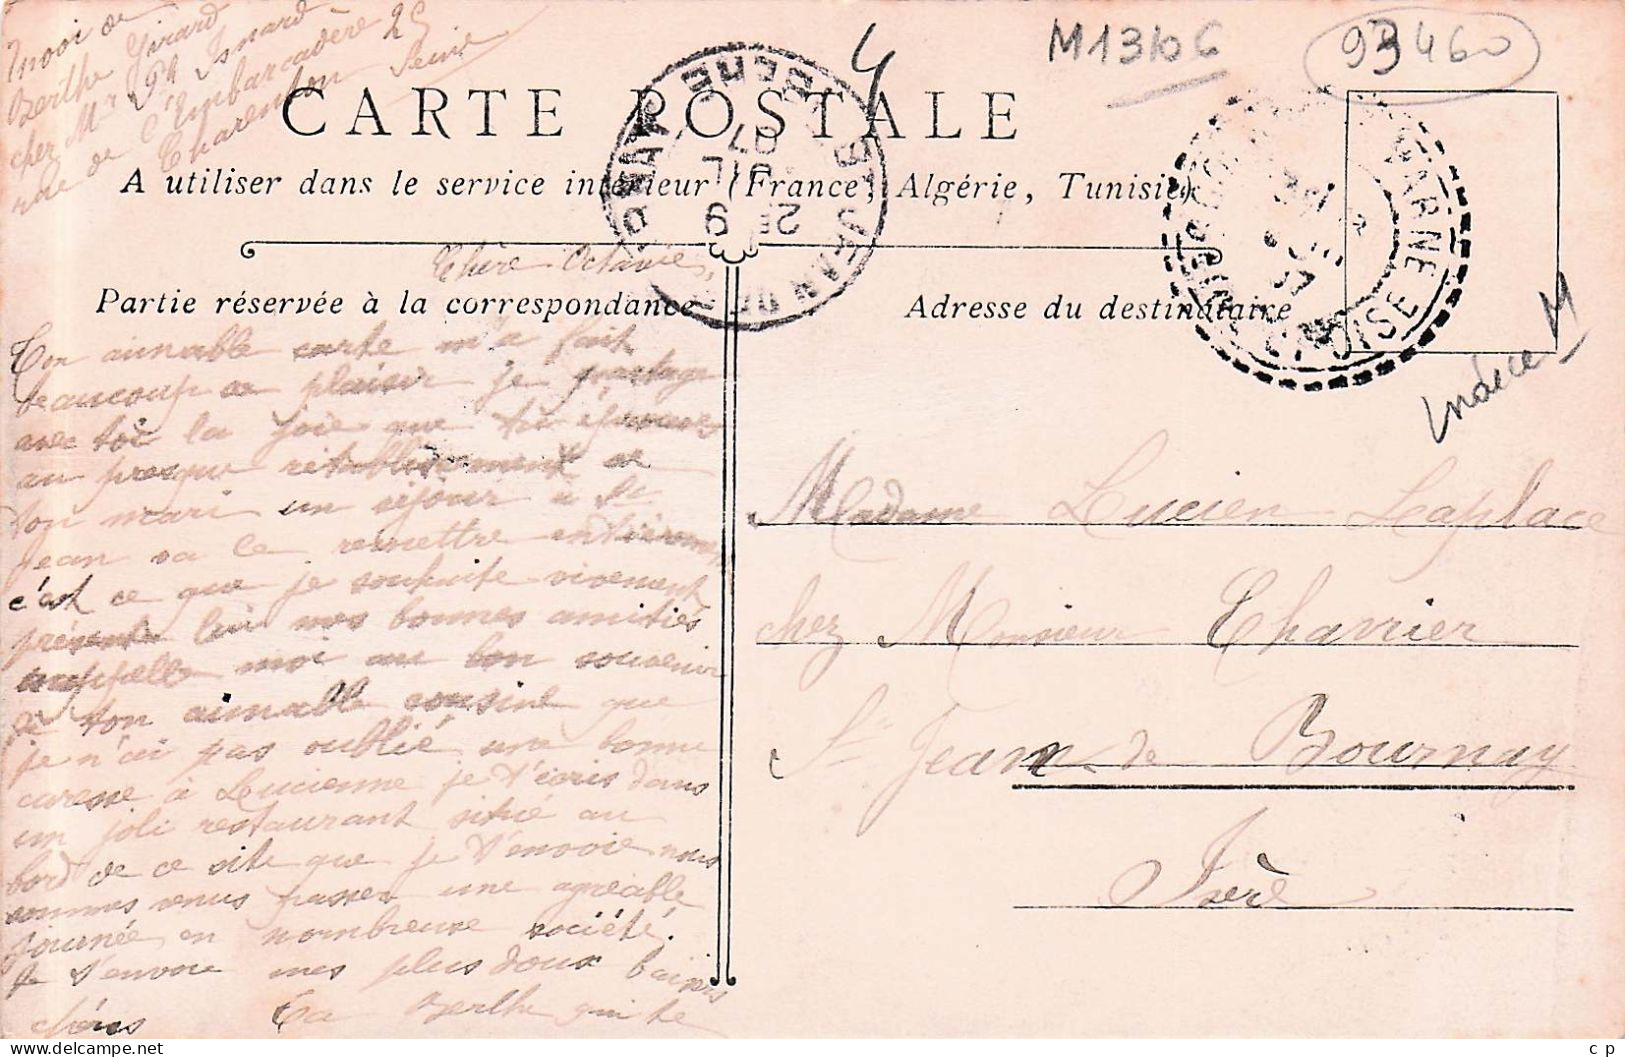 Envoi de
Berthe Girard
chez Mr Ph Isnard
rue de l'Embarcadère 25
Charenton Seine
M1310G
93460
CARTE POSTALE
A utiliser dans le service intérieur (France, Algérie, Tunisie)
Chère Octavie,
Partie réservée à la correspondance
Ton aimable carte m'a fait
beaucoup de plaisir je partage
avec toi la joie que tu éprouves
au presque rétablissement de
ton mari un séjour à St
Jean va le remettre entièrement
c'est ce que je souhaite vivement
présente lui mes bonnes amitiés
rappelle moi au bon souvenir
de ton aimable cousine que
je n'ai pas oublié une bonne
caresse à Lucienne je t'écris dans
un joli restaurant situé au
bord de ce site que je t'envoie nous
sommes venus passer une agréable
journée en nombreuse société.
Je t'envoie mes plus doux baisers
chéris Ta Berthe qui te
Adresse du destinataire
Indice M
Madame Lucien Laplace
chez Monsieur Chavrier
St Jean de Bournay
Isère
ST JEAN DE BOURNAY
2E 9
JIL
07
MARNE
OISE
cp